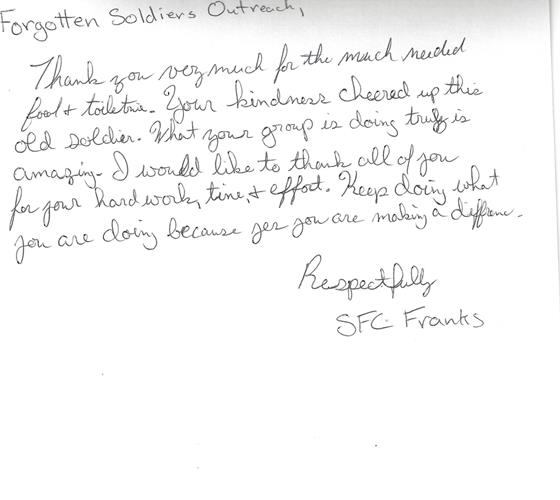 Forgotten Soldiers Outreach,
Thank you very much for the much needed
food & toiletrie. Your kindness cheered up this
old soldier. What your group is doing truly is
amazing. I would like to thank all of you
for your hard work, time, & effort. Keep doing what
you are doing because yes you are making a diffrenc.
Respectfully
SFC Franks